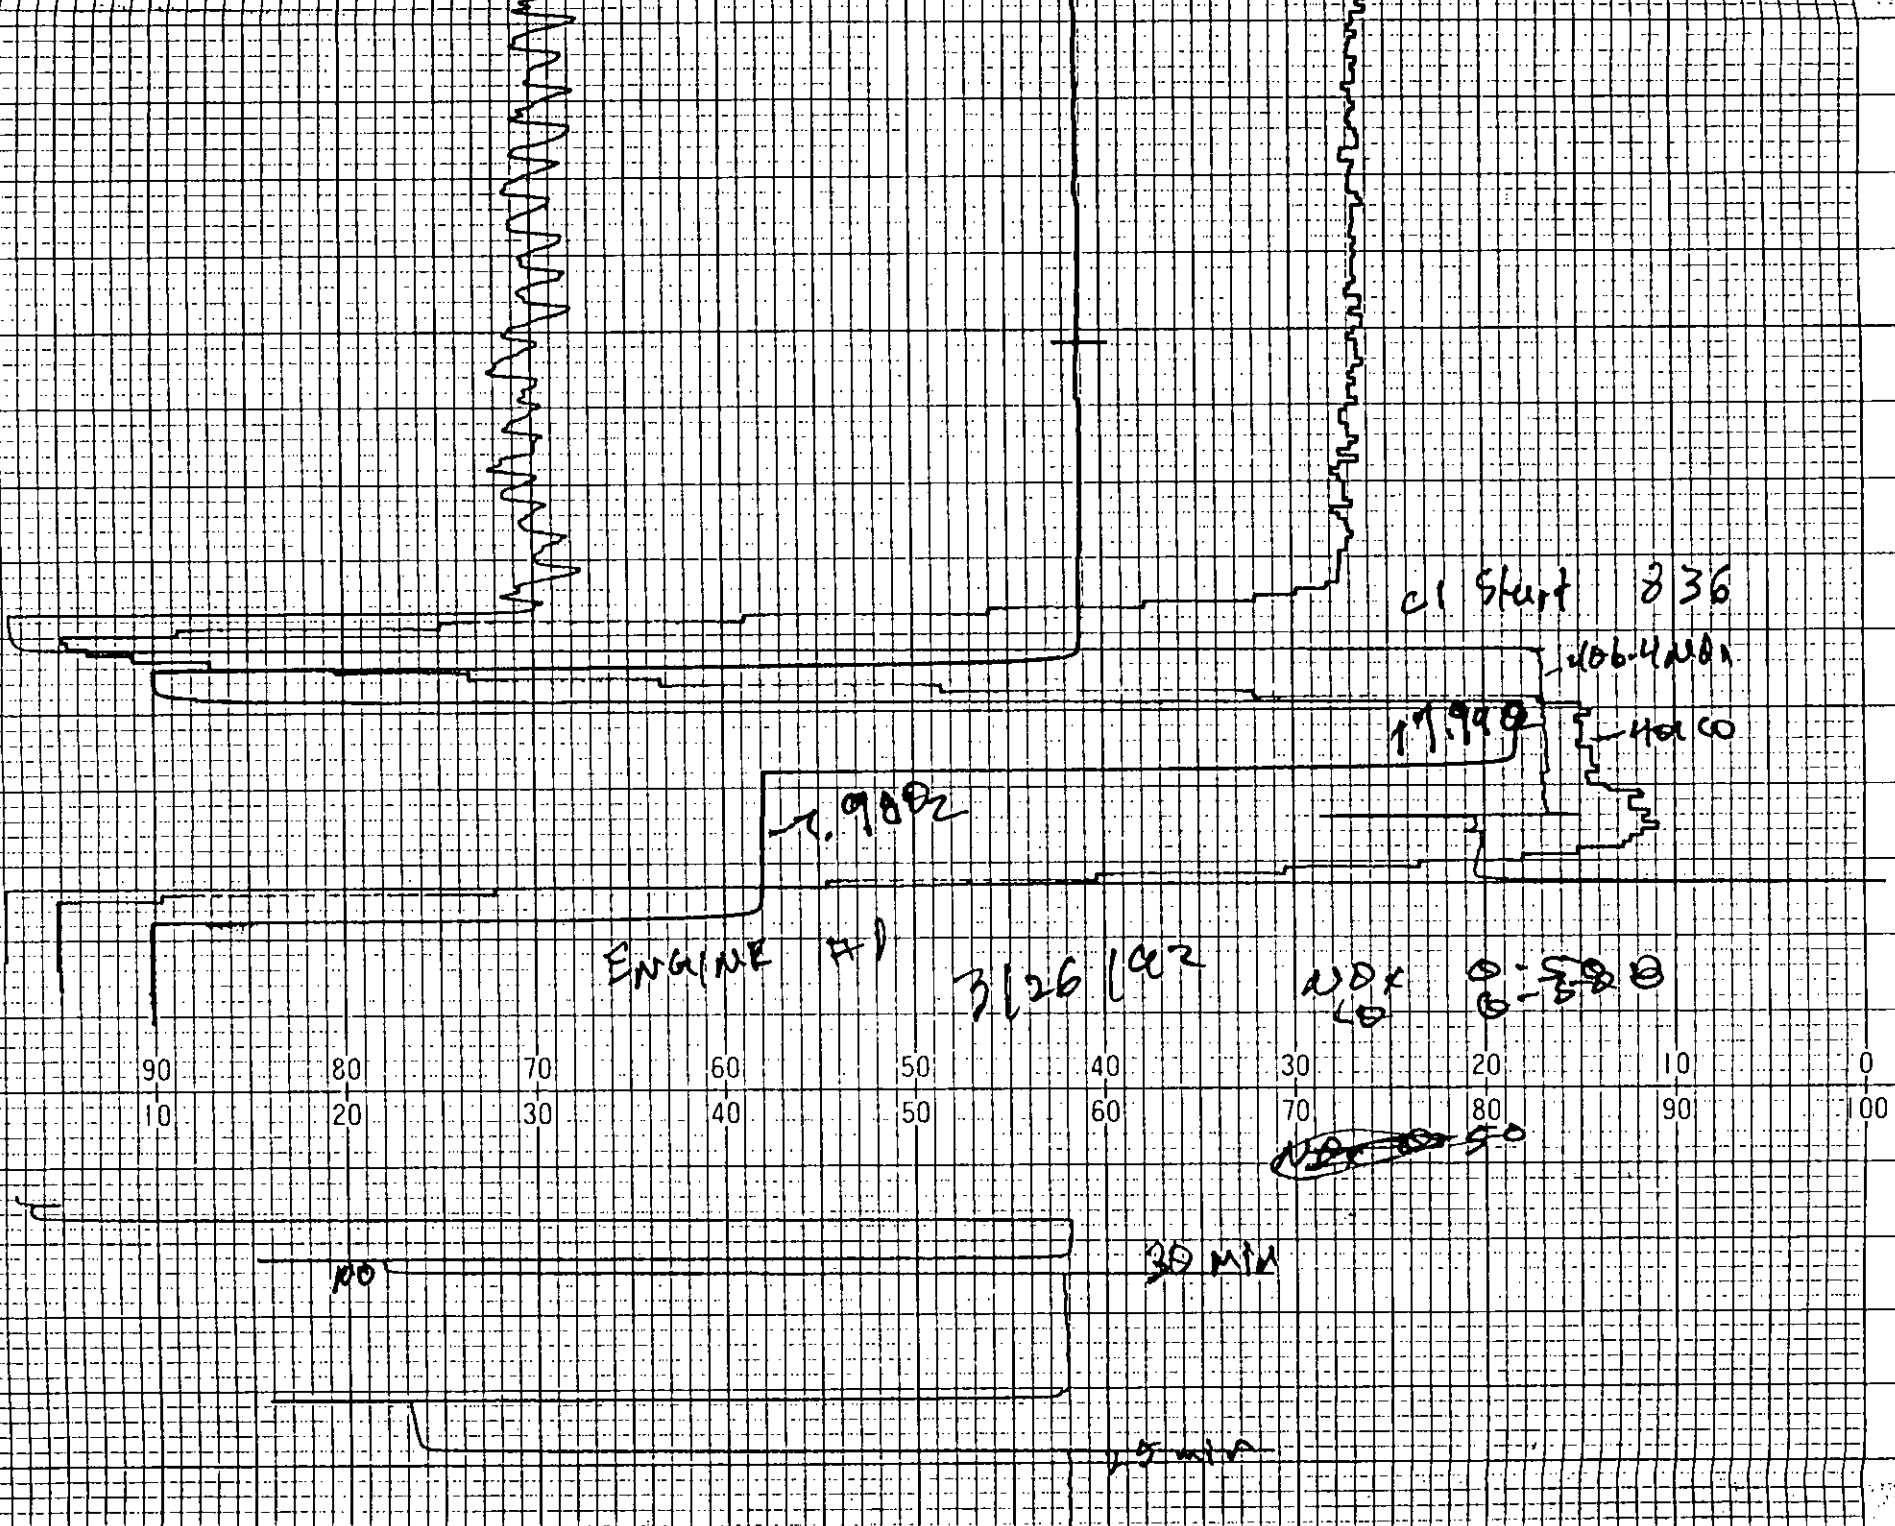 c1 Start 836
406.4 NOx
402 CO
17.998
7.98 O2
ENGINE #1
3/26/92
NOx 0-500
CO 0-500
90 80 70 60 50 40 30 20 10 0
10 20 30 40 50 60 70 80 90 100
50
NO
30 MIN
25 min